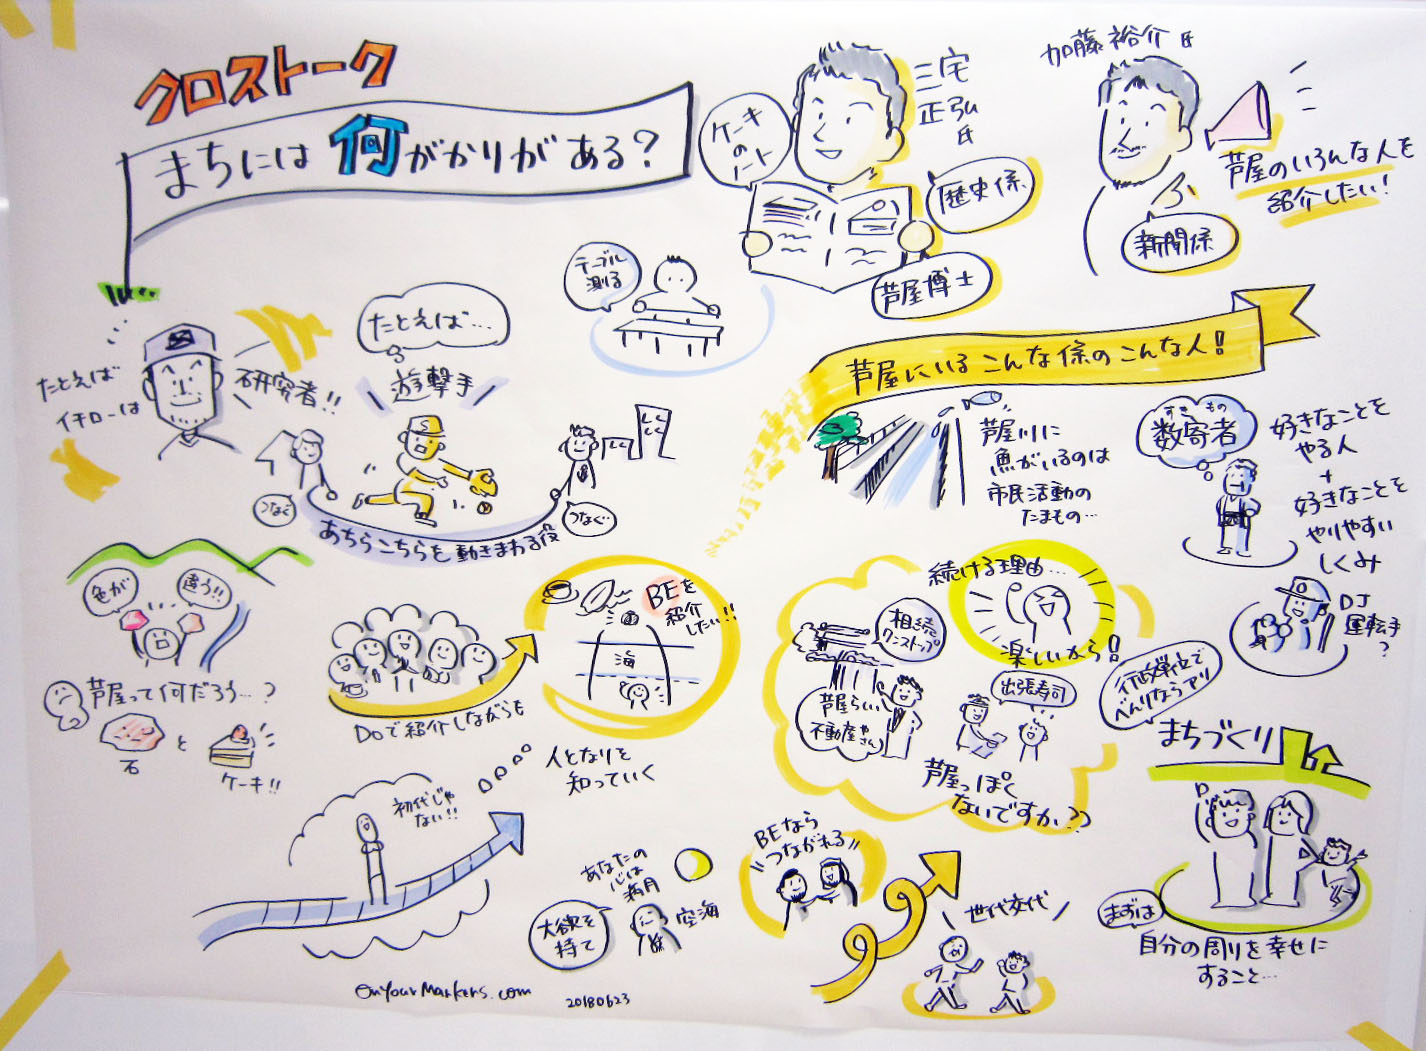 クロストーク
まちには何がかりがある?
ケーキ
の
ノート
三宅
正弘
氏
歴史係
芦屋博士
加藤裕介氏
芦屋のいろんな人を
紹介したい!
新聞係
テーブル
測る
たとえば
イチローは
研究者!!
たとえば…
遊撃手
つなぐ
つなぐ…
あちらこちらを動きまわる役
芦屋にいるこんな係のこんな人!
芦屋川に
魚がいるのは
市民活動の
たまもの…
すきもの
数寄者
好きなことを
やる人
+
好きなことを
やりやすい
しくみ
DJ
運転手
?
色が
違う!!
芦屋って何だろう…?
石
と
ケーキ!!
Doで紹介しながらも
BEを
紹介
したい!!
海
人となりを
知っていく
続ける理由…
楽しいから!
相続
ワンストップ
芦屋らしい
不動産やさん
出張寿司
芦屋っぽく
ないですか??
行政単位で
べんりならアリ
まちづくり
まずは
自分の周りを幸せに
すること…
初代じゃ
ない!!
あなたの
心は
満月
大欲を
持て
空海
BEなら
つながれる
世代交代
OnYourMarkers.com
20180623